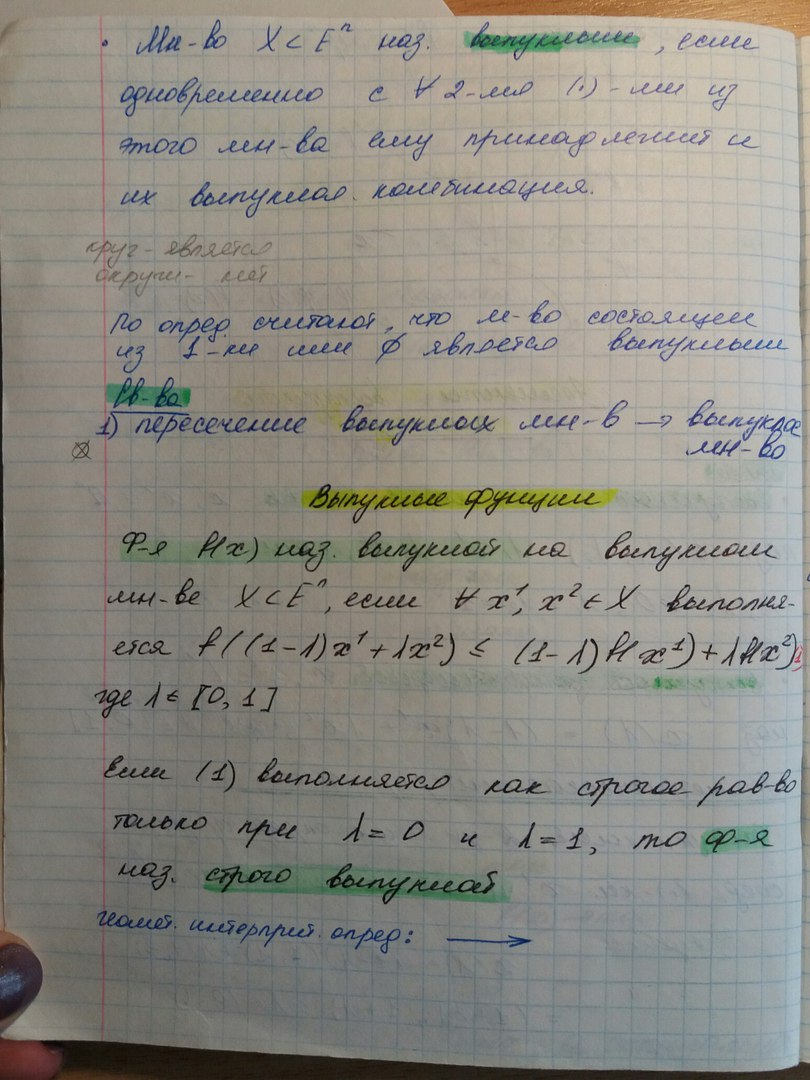 • Мн-во X ⊂ Eⁿ наз. выпуклым, если
одновременно с ∀ 2-мя (·)-ми из
этого мн-ва ему принадлежит и
их выпуклая комбинация.
круг - является
окружн - нет
По опред считают, что м-во состоящее
из 1-ки или ∅ является выпуклым
Св-ва
1) пересечение выпуклых мн-в → выпуклое
мн-во
Выпуклые функции
Ф-я f(x) наз. выпуклой на выпуклом
мн-ве X ⊂ Eⁿ, если ∀ x¹, x² ∈ X выполня-
ется f((1-λ)x¹ + λx²) ≤ (1-λ)f(x¹) + λf(x²) 1
где λ ∈ [0, 1]
Если (1) выполняется как строгое рав-во
только при λ = 0 и λ = 1, то ф-я
наз. строго выпуклой
геомет. интерприт. опред: →